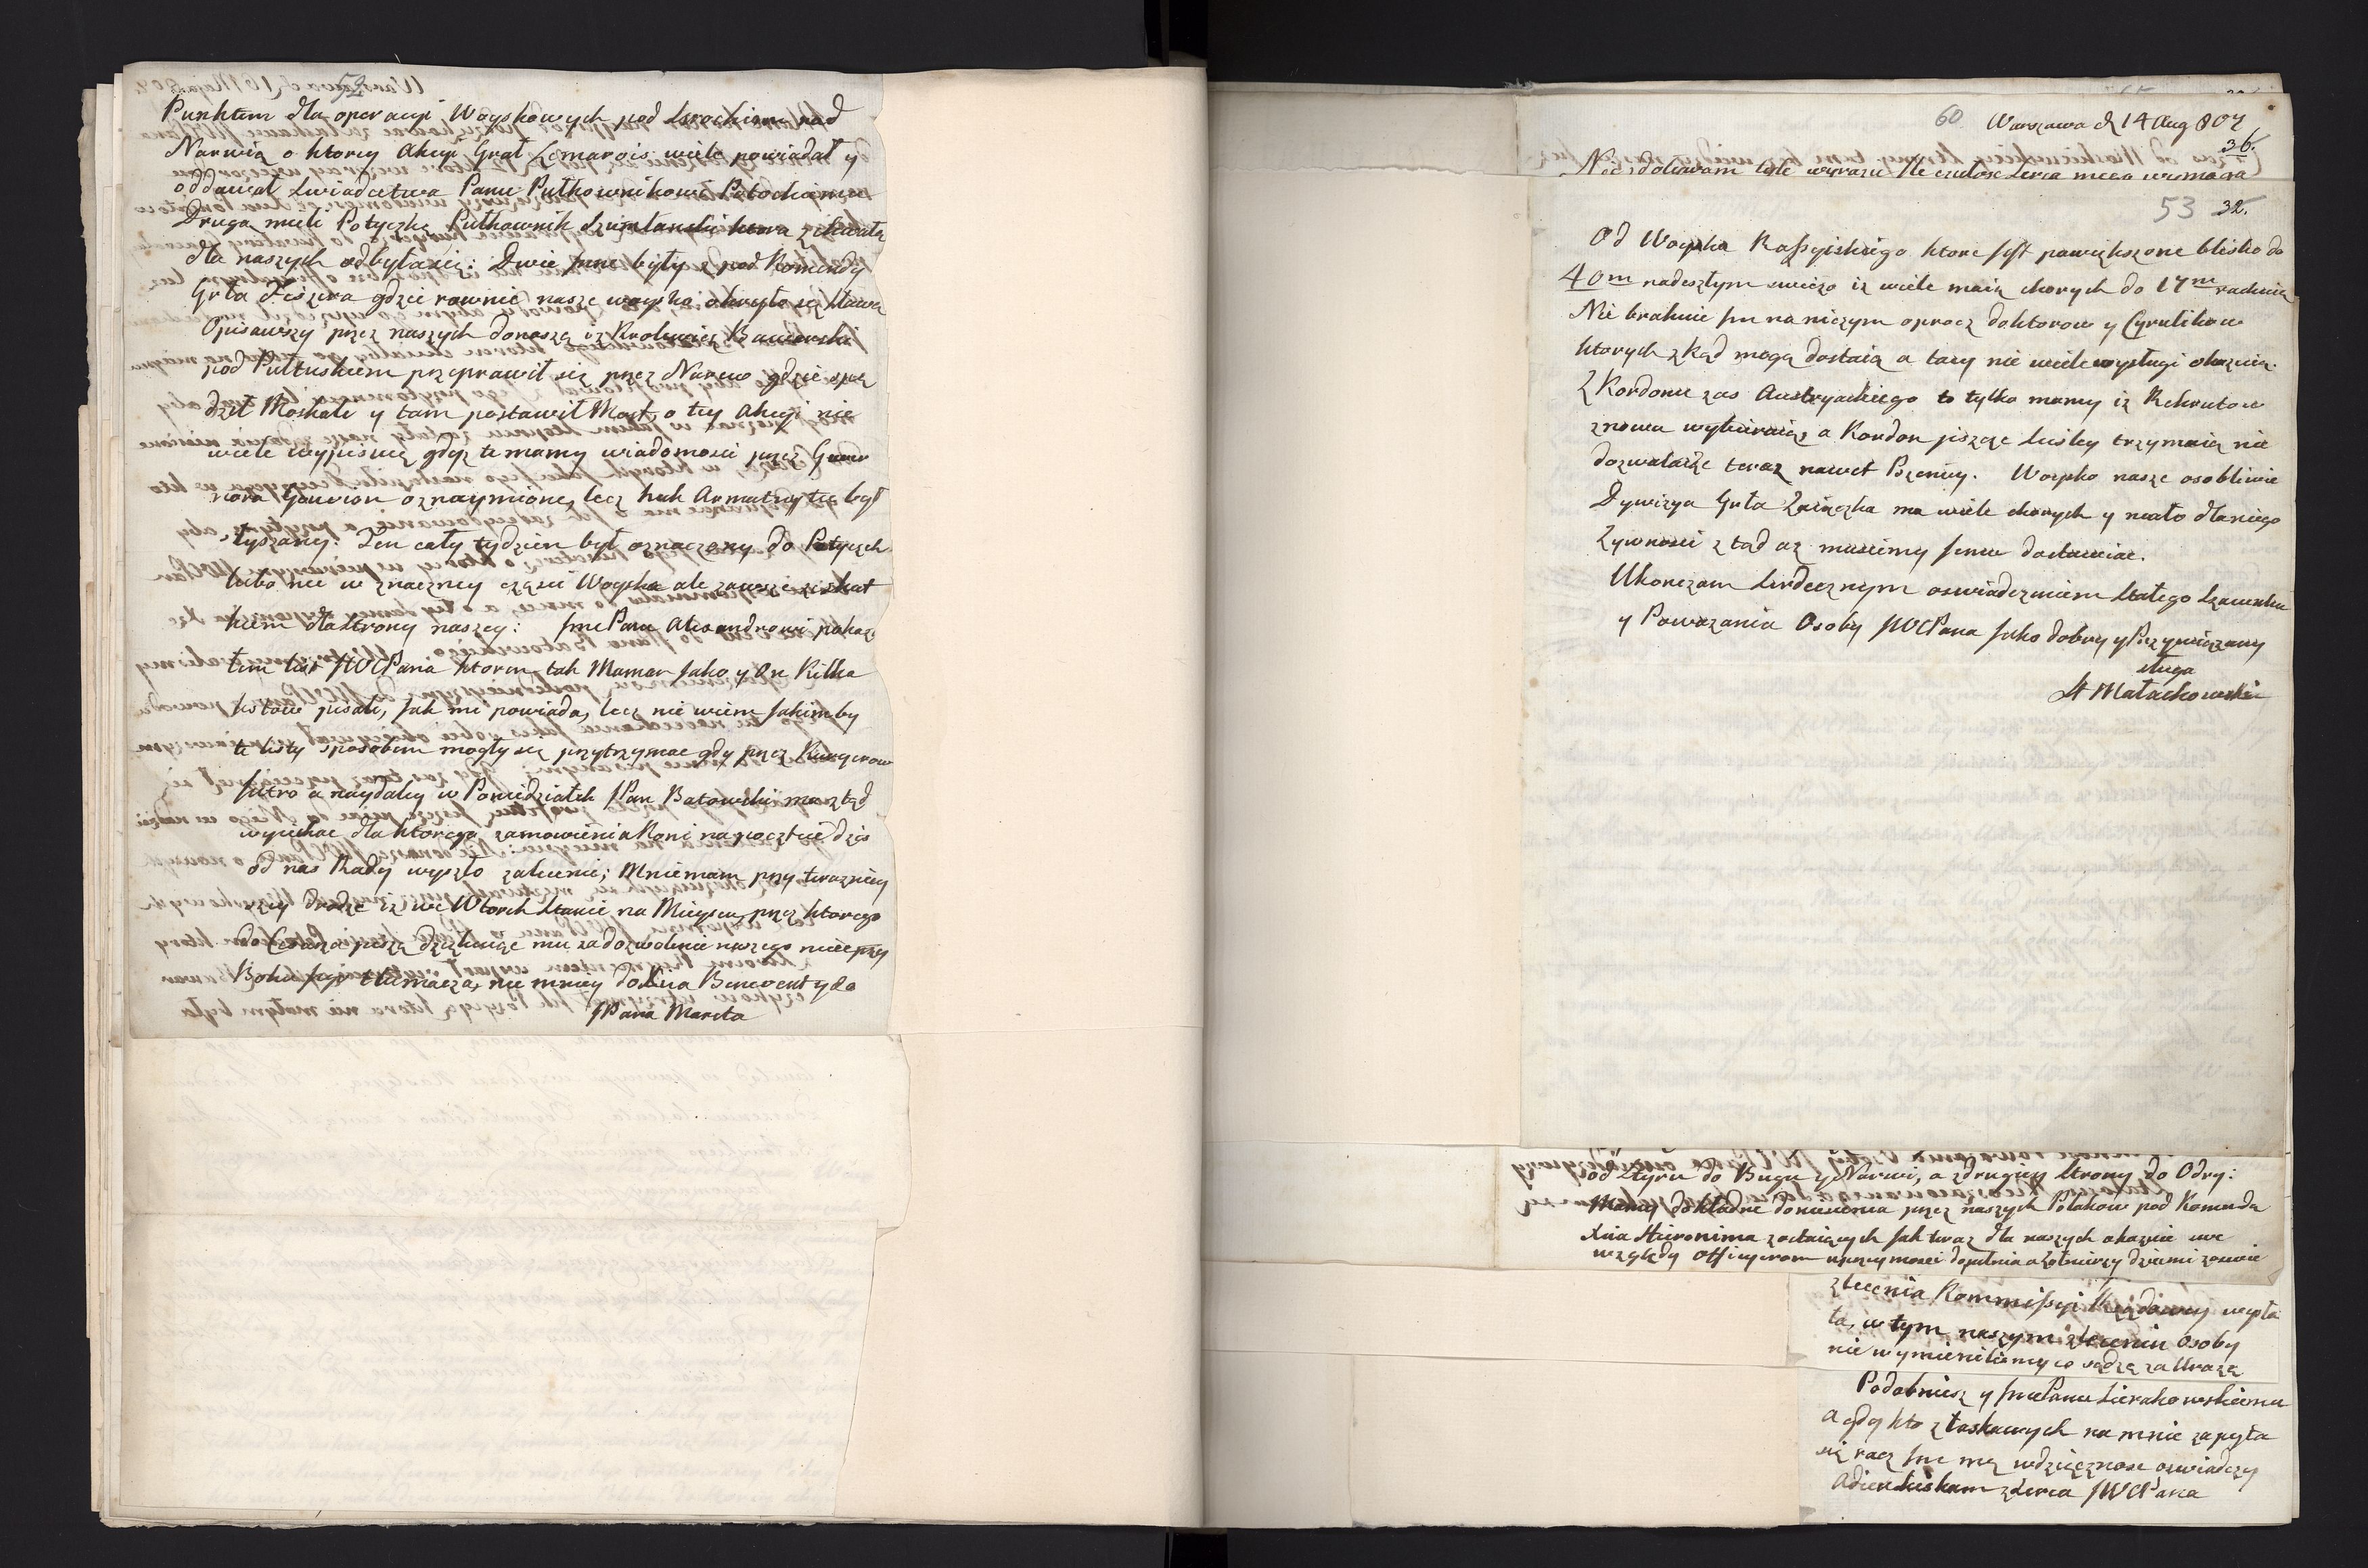 52
Punktem dla operacyi Woyskowych pod Serockiem nad
Narwią o ktorey Akcyi Grał Lemarois wiele powiadał y
oddawał swiadectwa Panu Pułkownikowi Potockiemu
Drugą mieli Potyczkę Pułkownik z chwałą
dla naszych odbyła się: Dwie Jnne były z pod Komendy
Grła Fiszera gdzie rownie nasze woysko okryło się sławą
Opisawszy przez naszych donoszą iż Krolewicz Bawarski
pod Pułtuskiem przeprawił się przez Narew gdzie spę
dził Moskali y tam postawił Most, o tey Akcyi nie
wiele wyjaśnię gdyż te mamy wiadomości przez Guwer
nora Gouvion oznaymione, lecz huk Armatny tu był
słyszany: Ten cały tydzien był oznaczony do Potyczek
lubo nie w znaczney części Woyska ale zawsze ze skut
kiem dla strony naszey: Jmc Panu Alexandrowi pokaza
łem list JWCPana ktorem tak Maman Jako y On Kilka
listow pisali, Jak mi powiada, lecz nie wiem Jakimby
te listy sposobem mogły się przytrzymac gdy przez Kuryerow
Jutro a naydaley w Poniedziałek JPan Batowski ma ztąd
wyiechac dla ktorego zamowienia Koni na poczcie dzis
od nas Rady wyszło zalecenie; Mniemam przy terazniey
szey drodze iż we Wtorek stanie na Mieyscu, przez ktorego
do Cesarza piszę dziękuiąc mu za dozwolenie naszego mieć przy
Boku Jego tłumacza, nie mniey do Xcia Benevent y do
JPana Mareta
60 Warszawa d 14 Aug 807
36.
Nie zdoływam tyle wyrazu Ile czułosc serca mego wymaga
53 32.
Od Woyska Rossyiskiego ktore Jest powiększone blisko do
40m nadeszłym swieżo iż wiele maią chorych do 17m rachuią
Nie brakuie Jm na niczym oprocz doktorow y Cyrulikow
ktorych zkąd mogą dostaią a tacy nie wiele wysługi okazuią.
Z Kordonu zas Austryackiego to tylko mamy iż Rekrutow
znowu wybieraią, a Kordon jeszcze scisley trzymaią nie
dozwalaiąc teraz nawet Pszenicy. Woysko nasze osobliwie
Dywizya Grła Zaiączka ma wiele chorych y mało dla niego
Zywnosci z tąd az musiemy Jemu dostawiac.
Ukonczam serdecznym oswiadczeniem stałego szacunku
y Powazania Osoby JWCPana Jako dobry y Przywiązany
sługa
St Małachowski
od Styru do Bugu y Narwi, a z drugiey strony do Odry:
Mamy dokładne doniesienia przez naszych Polakow pod Komendą
Xcia Hieronima zostaiących Jak teraz dla naszych okazuie swe
względy Officyerom uprzeymosci dopełnia a żołnierzy dziecmi zowie
zlecenia Kommissyi Rządowey wypła
ta, w tym naszym zleceniu Osoby
nie wymieniliśmy co sądzę za Urazę
Podobniesz y Jmc Panu Sierakowskiemu
a gdy kto z łaskawych na mnie zapyta
się racz Jmc mą wdzięcznosc oswiadczyc
Adieu sciskam z serca JWCPana